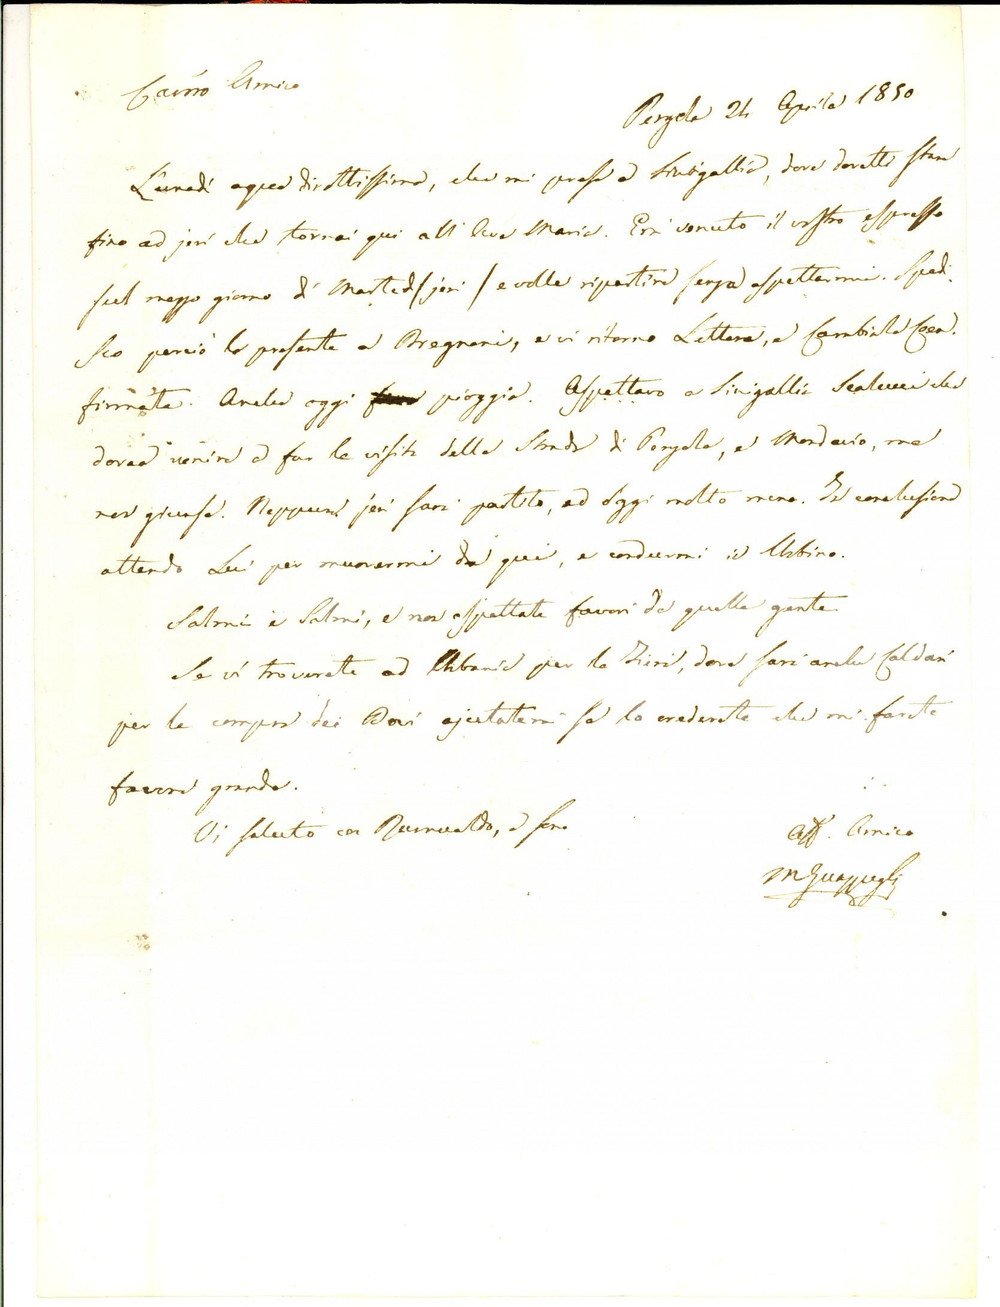 Carmo Amico
Pergola 24 Aprile 1850
Lunedì aqua dirottissima, che mi prese a Sinigallia, dove dovetti stare
fino ad jeri che tornai qui all'Ave Maria. Era venuto il vostro espresso
sul mezzo giorno di Martedì /jeri/ e volle ripartire senza aspettarmi. Spedi-
sco perciò la presente a Bregnani, e vi ritorno Lettera, e Cambiale
firmata. Anche oggi pioggia. Aspettavo a Sinigallia Scalucci che
dovea venire a far la visita della Strada di Pergola, e Mondavio, ma
non giunse. Neppure jeri sarà partito, ed oggi molto meno. In conclusione
attendo Lui per muovermi da qui, e condurmi in Urbino.
Salmi è Salmi, e non aspettate favori da quella gente.
Se vi troverete ad Urbania per la Fiera, dove sarà anche Caldari
per la compra dei Bovi ajutatemi se lo crederete che mi farete
favore grande.
Vi saluto con Romualdo, e sono
Aff. Amico
M Guazzugli